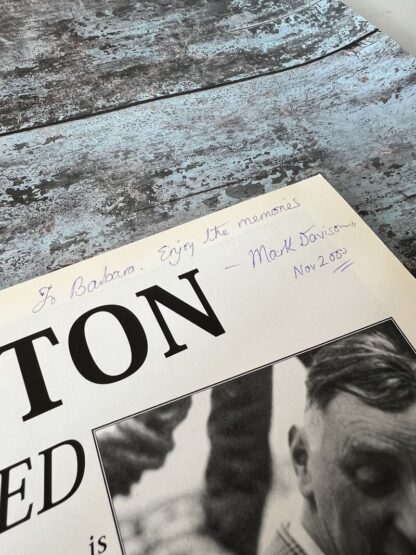 To Barbara. Enjoy the memories
- Mark Davison,
Nov 2000
TON
ED
is